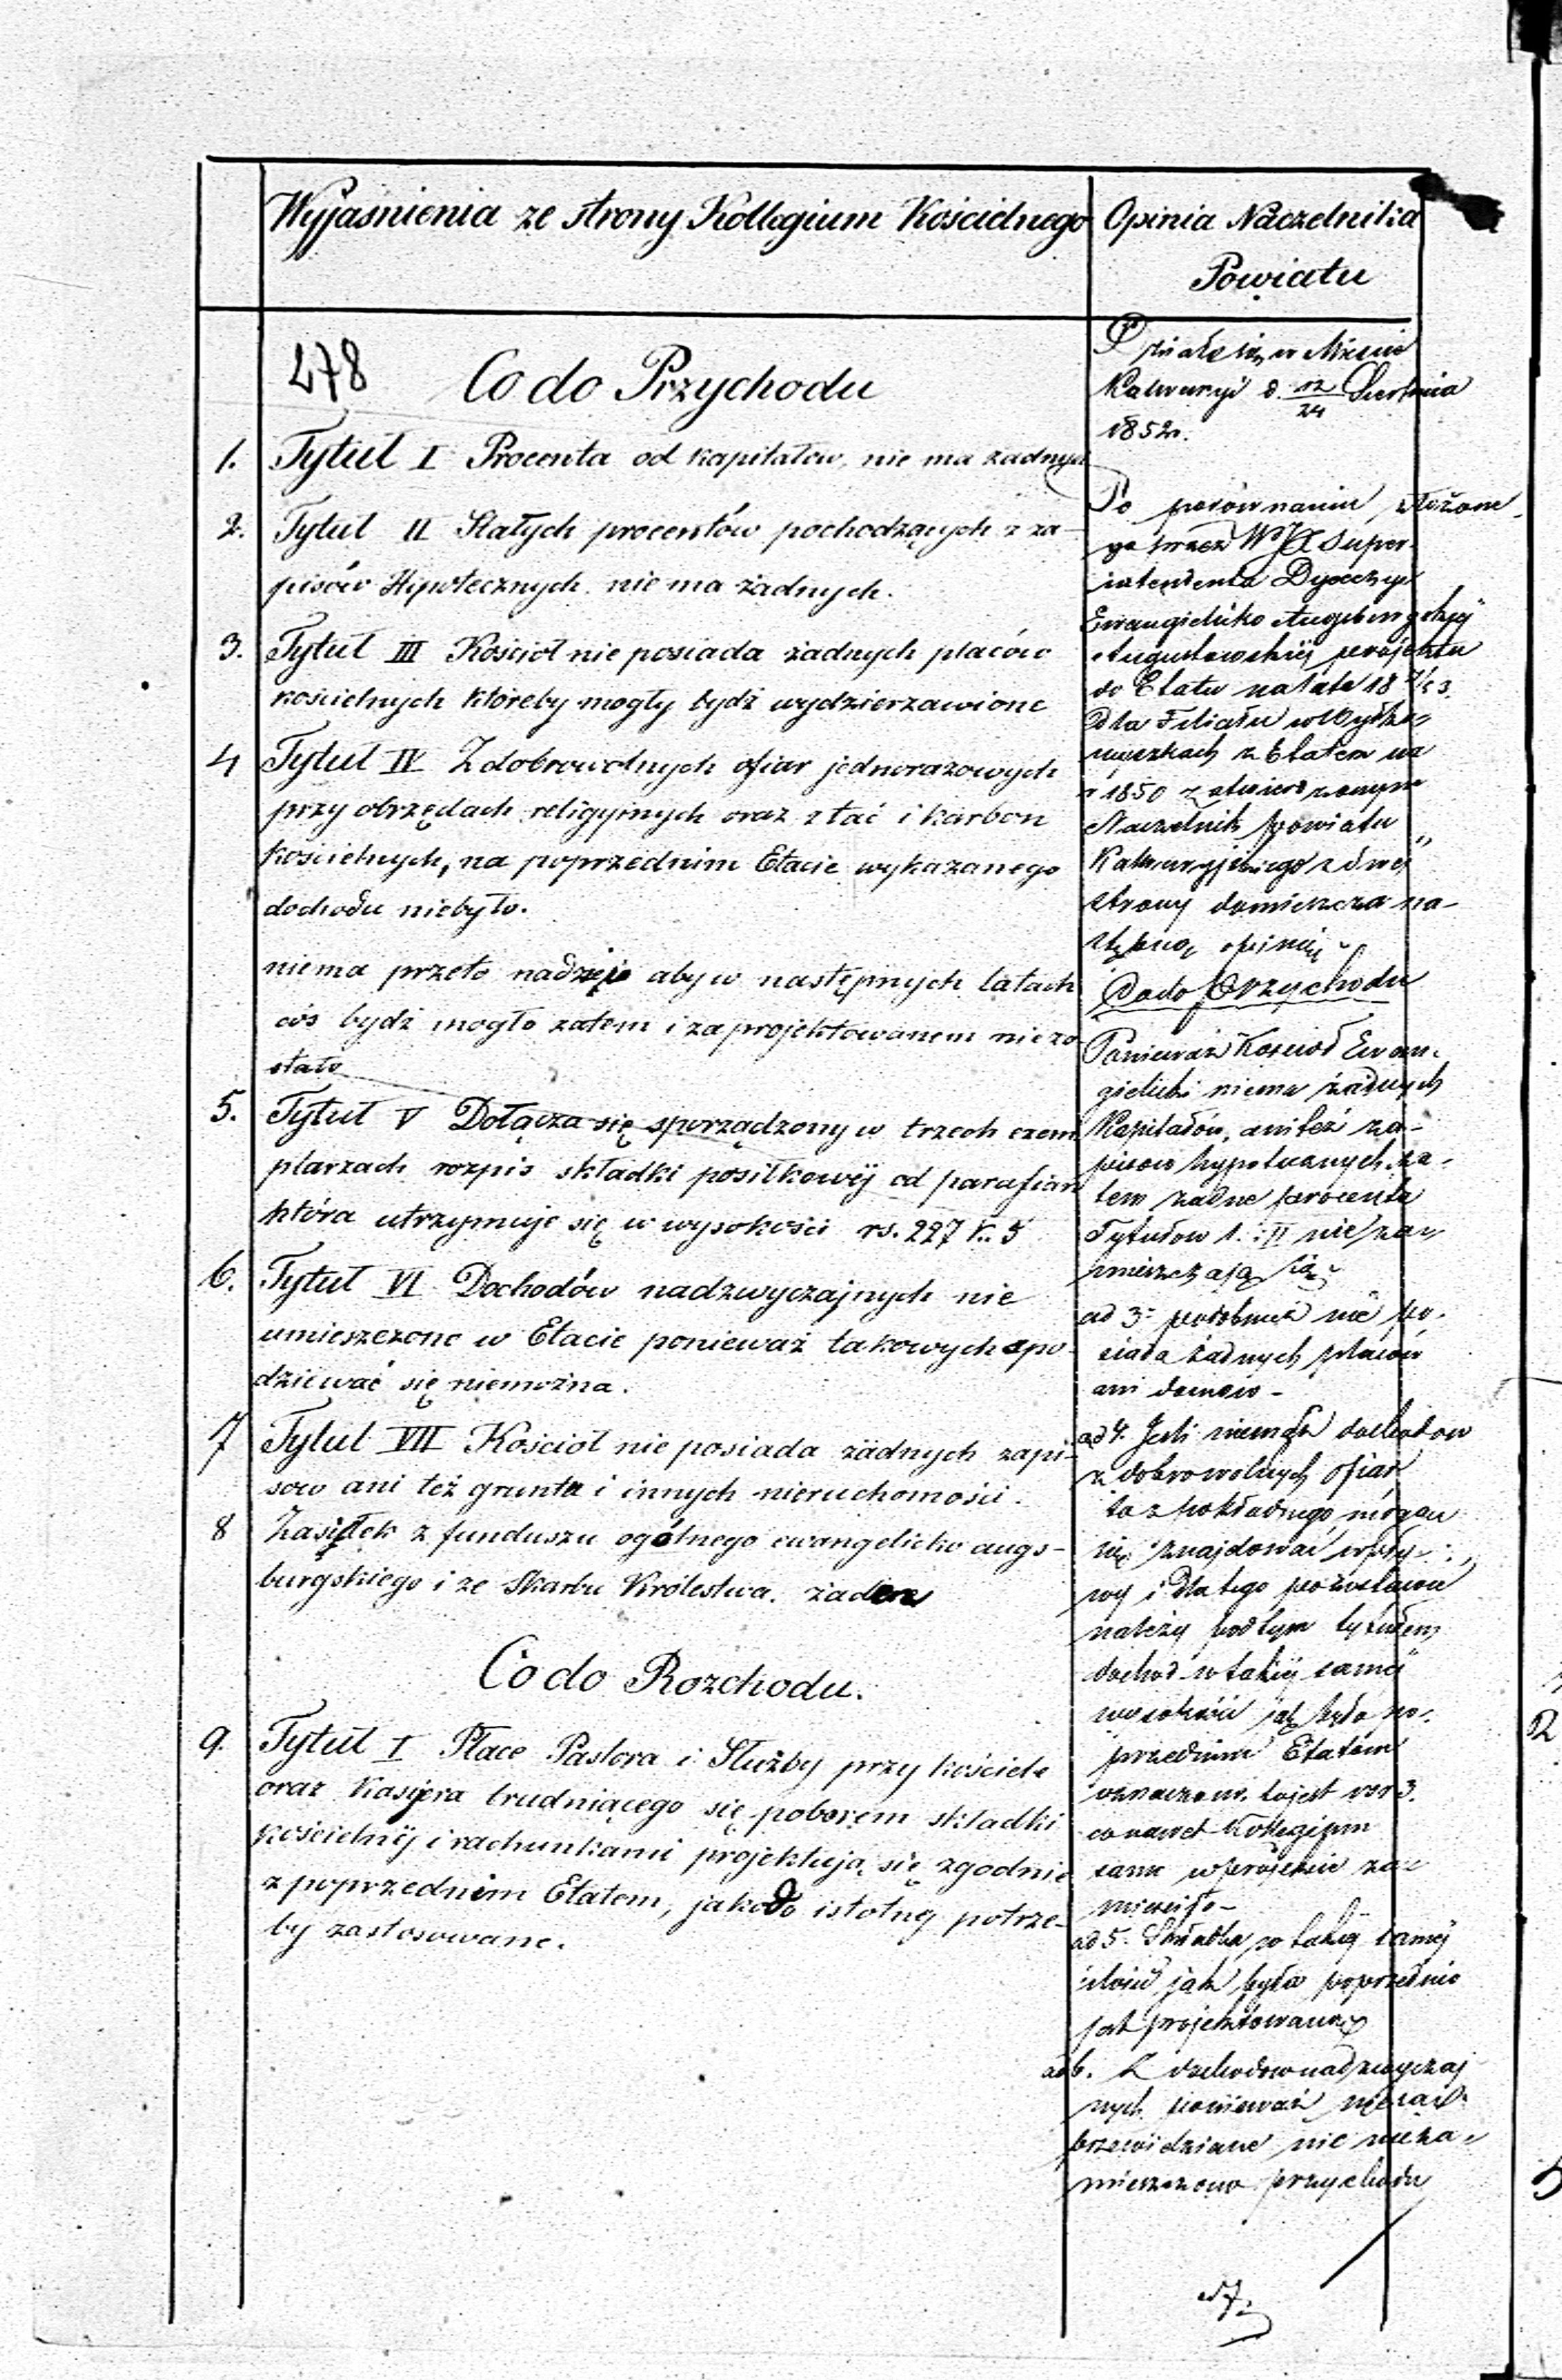 Wyjasnienia ze strony Kollegium Kościelnego
478
Co do Przychodu
1. Tytuł I Procenta od kapitałow, nie ma zadnych
2. Tytuł II Stałych procentów pochodzących z za-
pisów Hipotecznych nie ma żadnych.
3. Tytuł III Kościoł nie posiada żadnych placów
kościelnych któreby mogły bydź wydzierzawione
4 Tytuł IV Z dobrowolnych ofiar jednorazowych
przy obrzędach religyjnych oraz z tać i karbon
kościelnych, na poprzednim Etacie wykazanego
dochodu niebyło.
niema przeto nadzieje aby w następnych latach
cós bydź mogło zatem i zaprojektowanem nie zo-
stało
5. Tytuł V Dołącza się sporządzony w trzech exem
plarzach rozpis składki posiłkowéj od parafian
która utrzymuje się w wysokości rs. 227 k. 5
6. Tytuł VI Dochodów nadzwyczajnych nie
umieszczono w Etacie ponieważ takowych spo-
dziewać się niemożna.
7 Tytuł VII Kościoł nie posiada żadnych zapi-
sow ani też grunta i innych nieruchomości.
8 Zasiłek z funduszu ogólnego ewangelicko augs-
burgskiego i ze Skarbu Królestwa. żaden
Co do Rozchodu.
9. Tytuł I Płace Pastora i Służby przy kościele
oraz Kasyera trudniącego się poborem składki
kościelnéj i rachunkami projektują się zgodnie
z poprzednim Etatem, jako do istotnej potrze-
by zastosowane.
Opinia Naczelnika
Powiatu
Działo się w Mieście
Kalwaryi d. 12/24 Sierpnia
1852 r.
Po porównaniu złożone
go przez WJX Super-
intendenta Dyecezyi
Ewangielicko Augsburgskiéj
Augustowskiéj projektu
do Etatu na lata 18
dla Filiału w Wyłko-
wyszkach z Etatem na
r 1850 zatwierdzonym
Naczelnik powiatu
Kalwaryjskiego z swej
strony domieszcza na-
stępną opinię
Co do Przychodu
Ponieważ Kościoł Ewan-
gielicki niema żadnych
Kapitałów, ani też za-
pisow hypotecznych, za-
tem żadne procenta
Tytułow 1. i II nie za-
mieszczają się
ad 3. podobnież nie po-
siada żadnych placów
ani domow -
ad 4. Jeśli niema dochodow
z dobrowolnych ofiar
to z pokładnego mogą
się znajdować wpły-
wy i dla tego pozostawić
należy pod tym tytułem
dochod w takiéj saméj
wysokości jak było po-
przednim Etatem
oznaczone to jest rsr 3.
co nawet Kollegium
same w projekcie za-
mieściło -
ad 5. Składka w takiéj saméj
ilości jak była poprzednio
jest projektowaną
ad 6. Z dochodow nadzwyczaj
nych ponieważ nie są
przewidziane nic nieza-
mieszczono przychodu
ad 7.